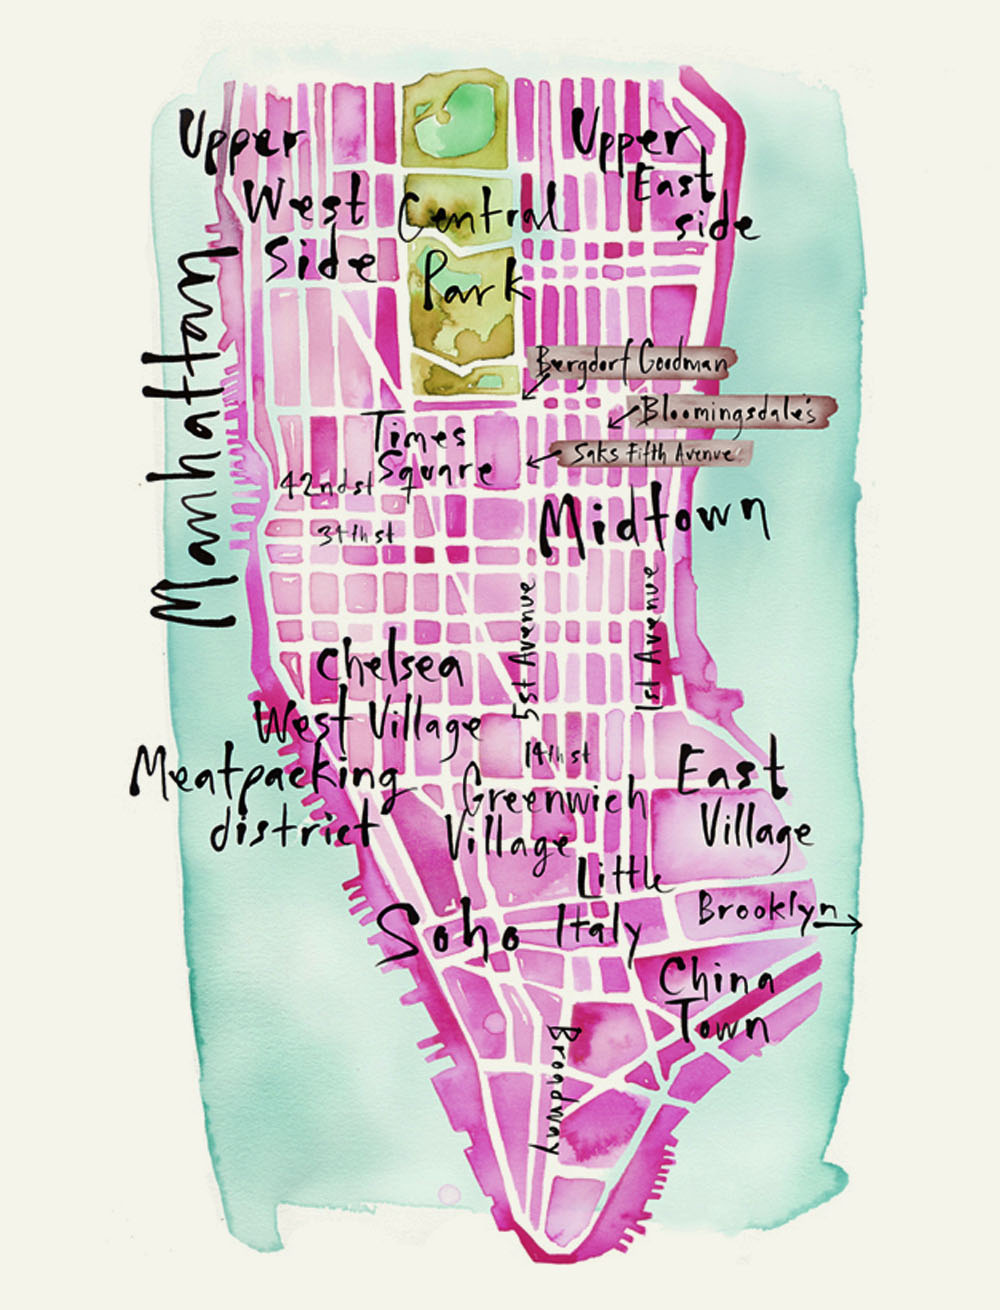 Upper
West
Side
Central
Park
Upper
East
side
Manhattan
Bergdorf Goodman
Bloomingsdale's
Saks Fifth Avenue
Times
Square
42nd st
34th st
Midtown
5st Avenue
1st Avenue
Chelsea
West Village
14th st
Meatpacking
district
Greenwich
Village
East
Village
Little
Italy
Soho
Brooklyn
China
Town
Broadway